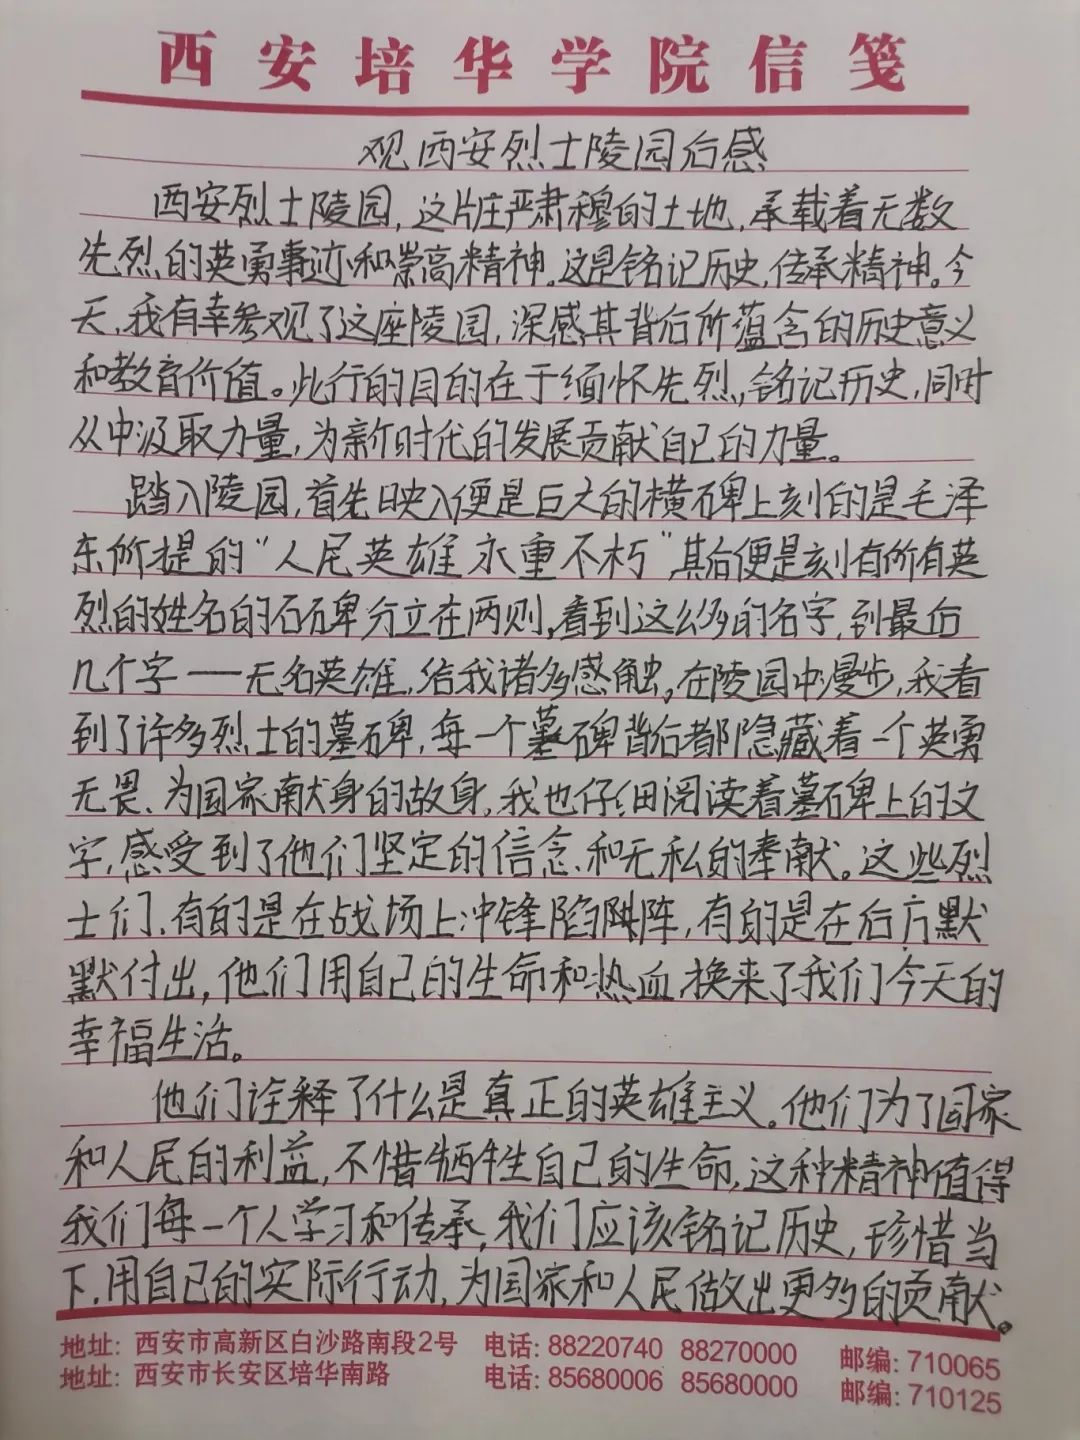 西安培华学院信笺
观西安烈士陵园后感
西安烈士陵园，这片庄严肃穆的土地，承载着无数
先烈的英勇事迹和崇高精神。这是铭记历史，传承精神。今
天，我有幸参观了这座陵园，深感其背后所蕴含的历史意义
和教育价值。此行的目的在于缅怀先烈，铭记历史，同时
从中汲取力量，为新时代的发展贡献自己的力量。
踏入陵园，首先映入便是巨大的横碑上刻的是毛泽
东所提的“人民英雄永重不朽”其后便是刻有所有英
烈的姓名的石碑分立在两则，看到这么多的名字，到最后
几个字——无名英雄，给我诸多感触，在陵园中漫步，我看
到了许多烈士的墓碑，每一个墓碑背后都隐藏着一个英勇
无畏、为国家献身的故身，我也仔细阅读着墓碑上的文
字，感受到了他们坚定的信念、和无私的奉献。这些烈
士们、有的是在战场上冲锋陷阵，有的是在后方默
默付出，他们用自己的生命和热血，换来了我们今天的
幸福生活。
他们诠释了什么是真正的英雄主义。他们为了国家
和人民的利益，不惜牺牲自己的生命，这种精神值得
我们每一个人学习和传承，我们应该铭记历史，珍惜当
下，用自己的实际行动，为国家和人民做出更多的贡献。
地址：西安市高新区白沙路南段2号 电话：88220740 88270000 邮编：710065
地址：西安市长安区培华南路 电话：85680006 85680000 邮编：710125